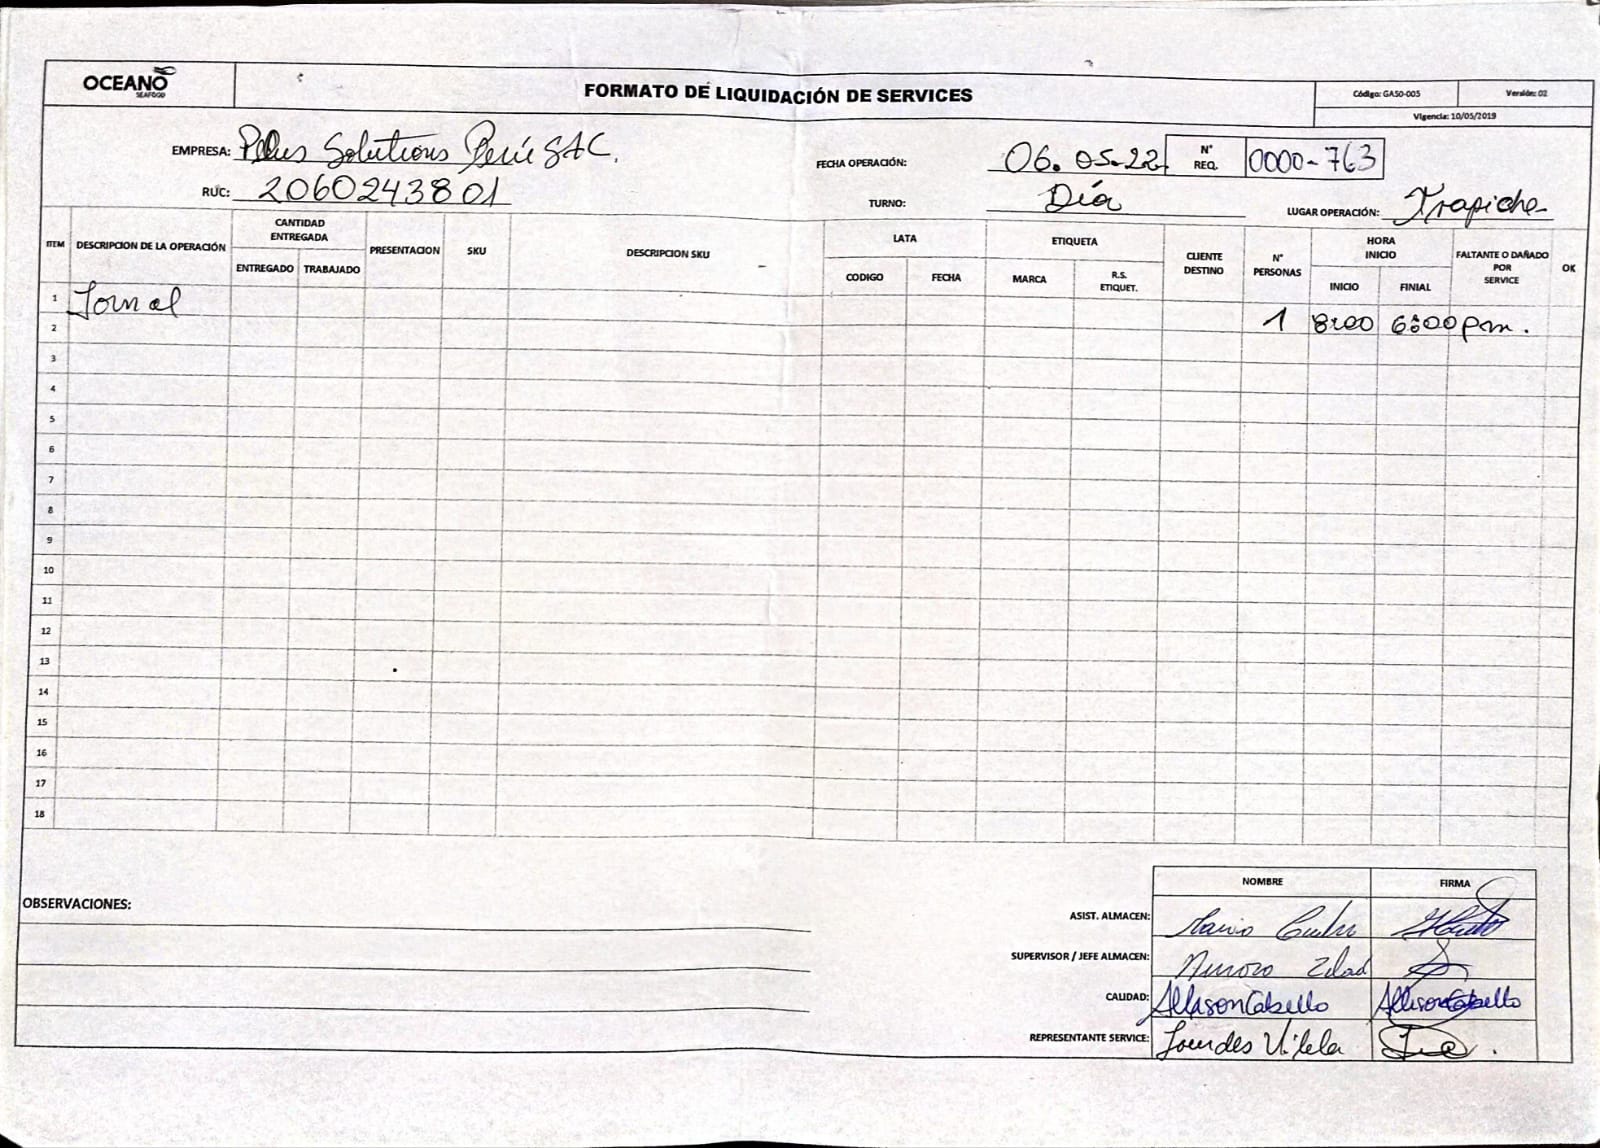 OCEANO
SEAFOOD
FORMATO DE LIQUIDACIÓN DE SERVICES
Código: GASO-005
Versión: 02
Vigencia: 10/05/2019
EMPRESA: Solutions Perú SAC.
FECHA OPERACIÓN: 06.05-22
N° REQ. 0000-763
RUC: 2060243801
TURNO: Día
LUGAR OPERACIÓN: Trapiche
ITEM
DESCRIPCION DE LA OPERACIÓN
CANTIDAD ENTREGADA
ENTREGADO
TRABAJADO
PRESENTACION
SKU
DESCRIPCION SKU
LATA
CODIGO
FECHA
ETIQUETA
MARCA
R.S. ETIQUET.
CLIENTE DESTINO
N° PERSONAS
HORA INICIO
INICIO
FINIAL
FALTANTE O DAÑADO POR SERVICE
OK
1 Jornal 1 8:00 6:00pm.
2
3
4
5
6
7
8
9
10
11
12
13
14
15
16
17
18
OBSERVACIONES:
NOMBRE
FIRMA
ASIST. ALMACEN:
SUPERVISOR / JEFE ALMACEN:
CALIDAD: Allison Cabello Allison Cabello
REPRESENTANTE SERVICE: Lourdes Vilela